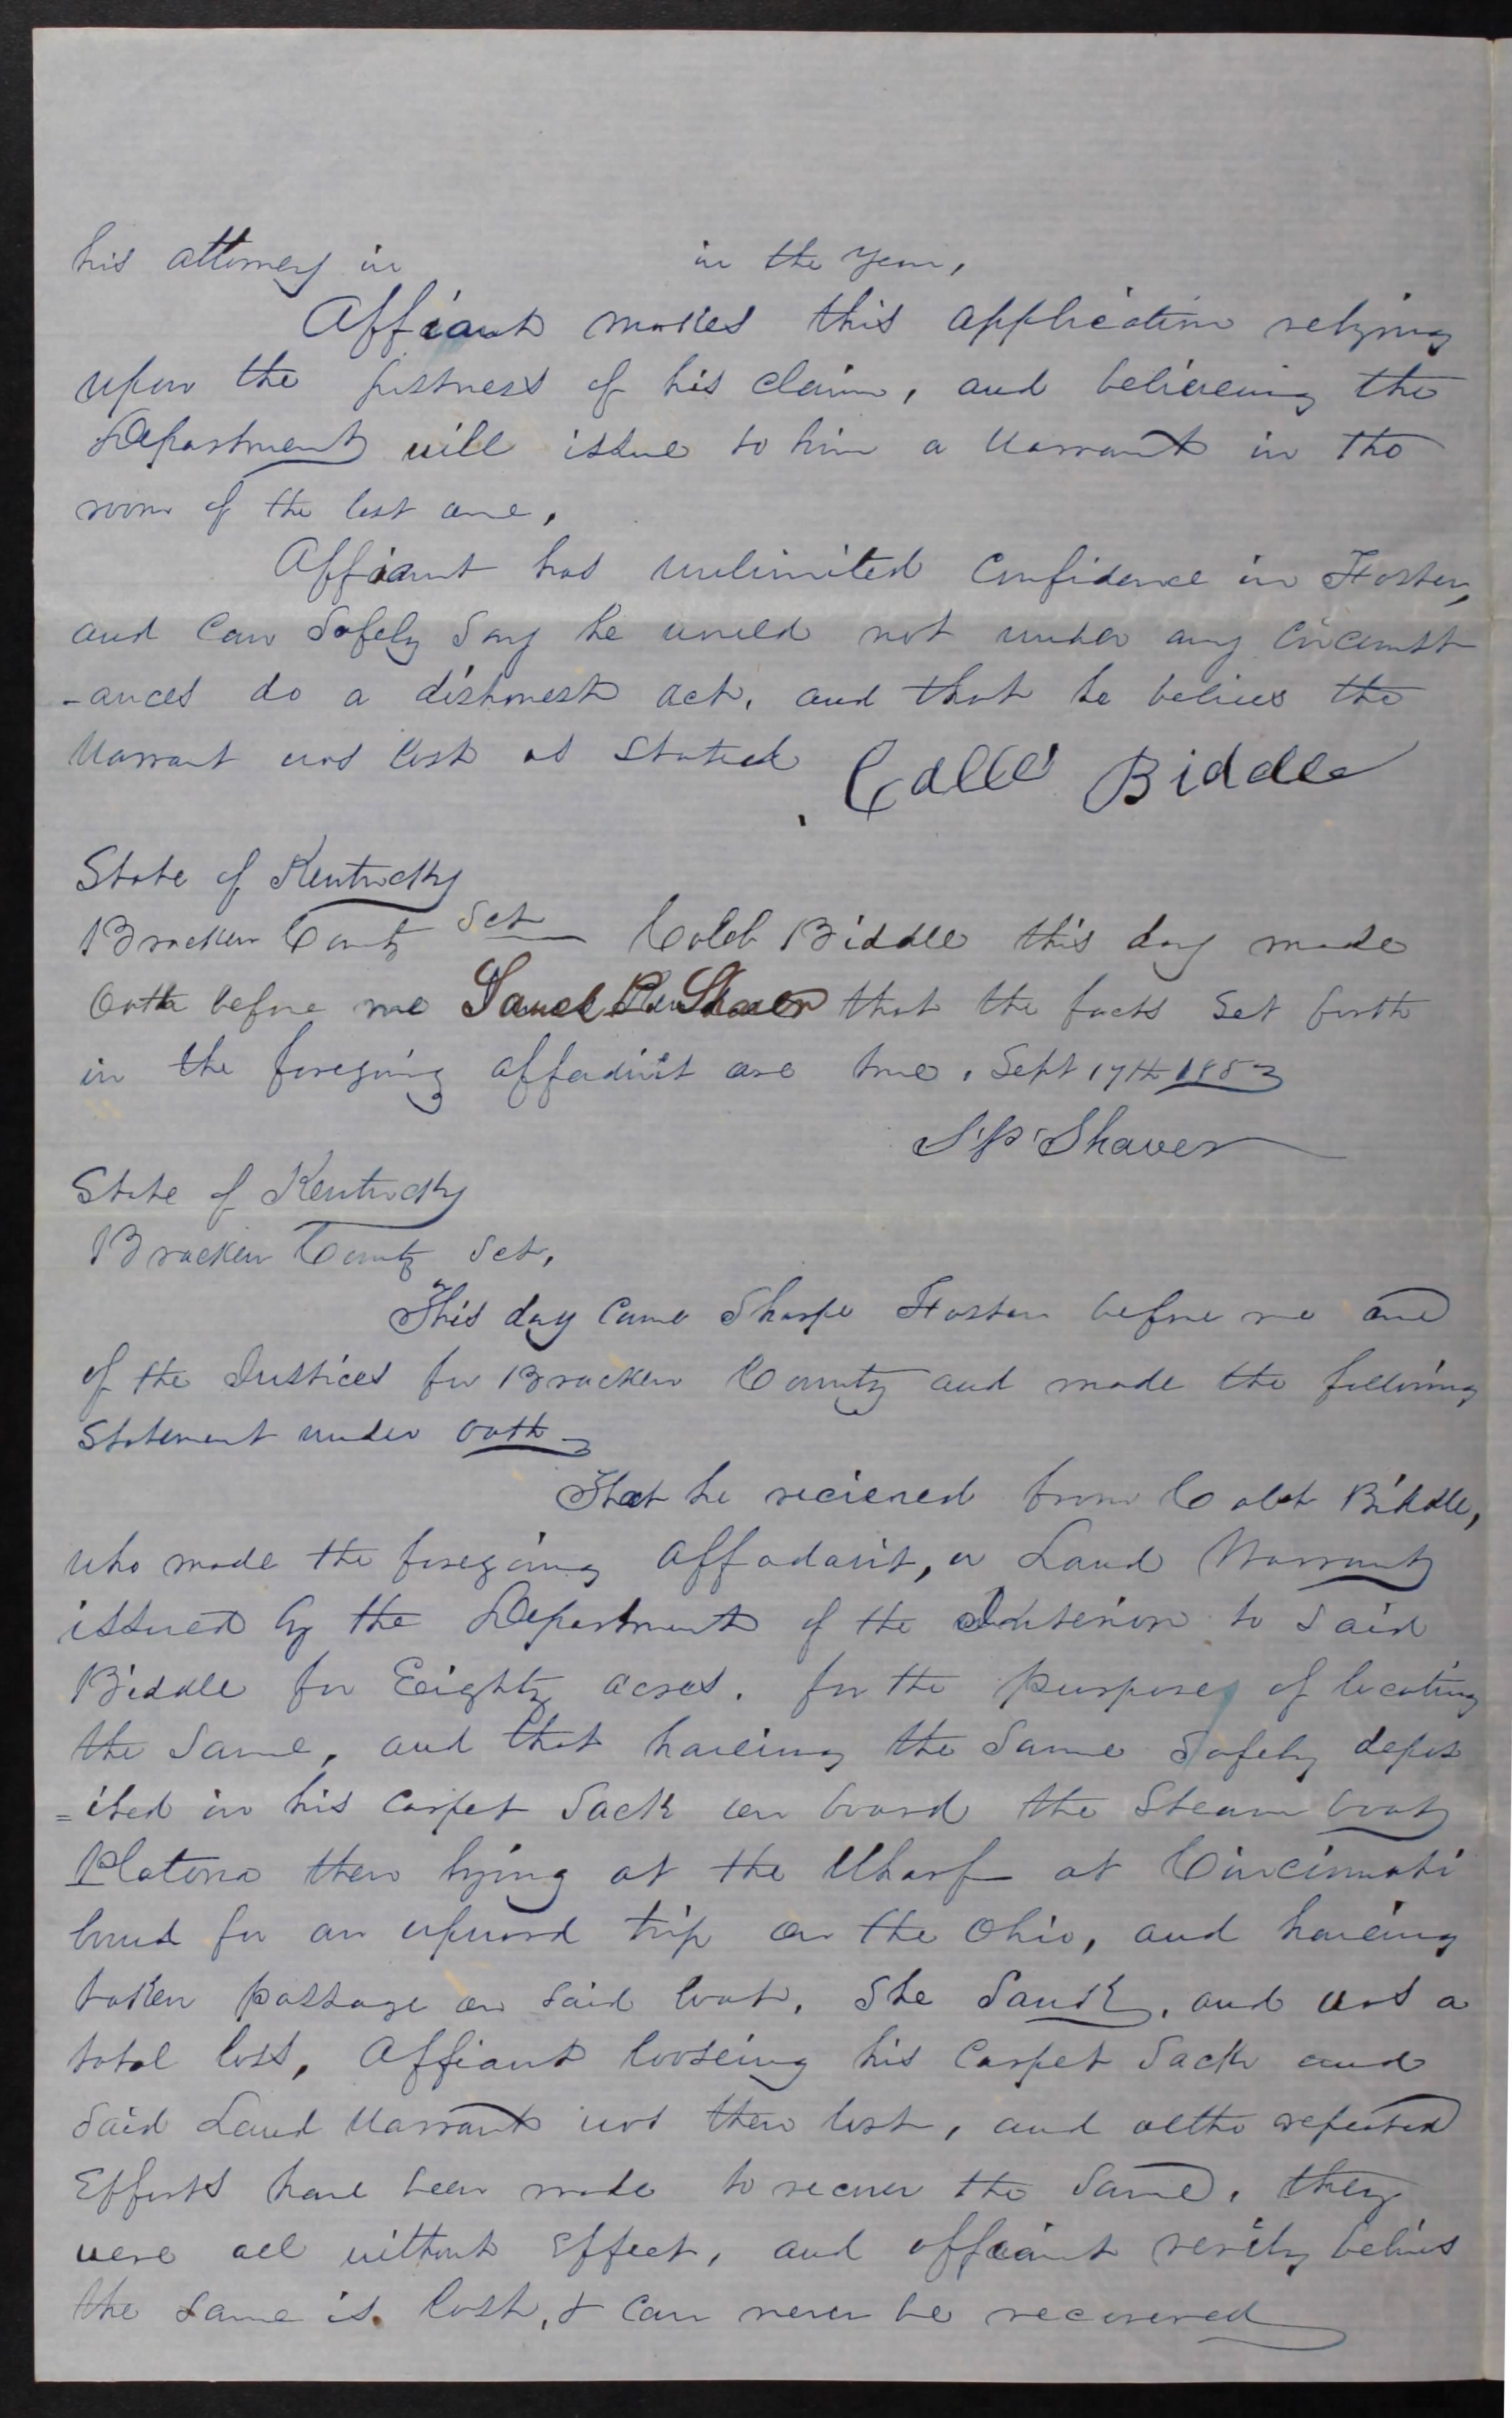 his attorney in in the year,
Affiant makes this application relying
upon the justness of his claim, and believeing the
Department will issue to him a Warrant in the
room of the lost one,
Affiant has unlimited Confidence in Foster,
and can Safely Say he would not under any Circumst
-ances do a dishonest act, and that he belives the
Warrant was lost as Stated
Calleb Biddle
State of Kentucky
Bracken County Sct Caleb Biddle this day made
Oath before me Shaver that the facts Set forth
in the foregoing affadivit are true, Sept 17th 1853
S P Shaver
State of Kentucky
Bracken County Sct,
This day Came Sharpe Foster before me one
of the Justices for Bracken County and made the following
Statement under oath
That he recieved from Caleb Biddle,
who made the foregoing Affadavit, a Land Warrant
issued by the Department of the Interior to Said
Biddle for Eighty acres. for the purpose of locating
the Same, and that haveing the Same Safely depos
=ited in his Carpet Sack on board the Steam boat
Platona then lying at the Wharf at Cincinnati
bound for an upward trip on the Ohio, and haveing
taken passage on Said boat, She Sank, and was a
total loss, Affiant looseing his Carpet Sack and
Said Land Warrant was then lost, and altho repeated
Efforts have been made to recover the Same, they
were all without Effect, and affiant verily belives
the Same is lost, & Can never be recovered